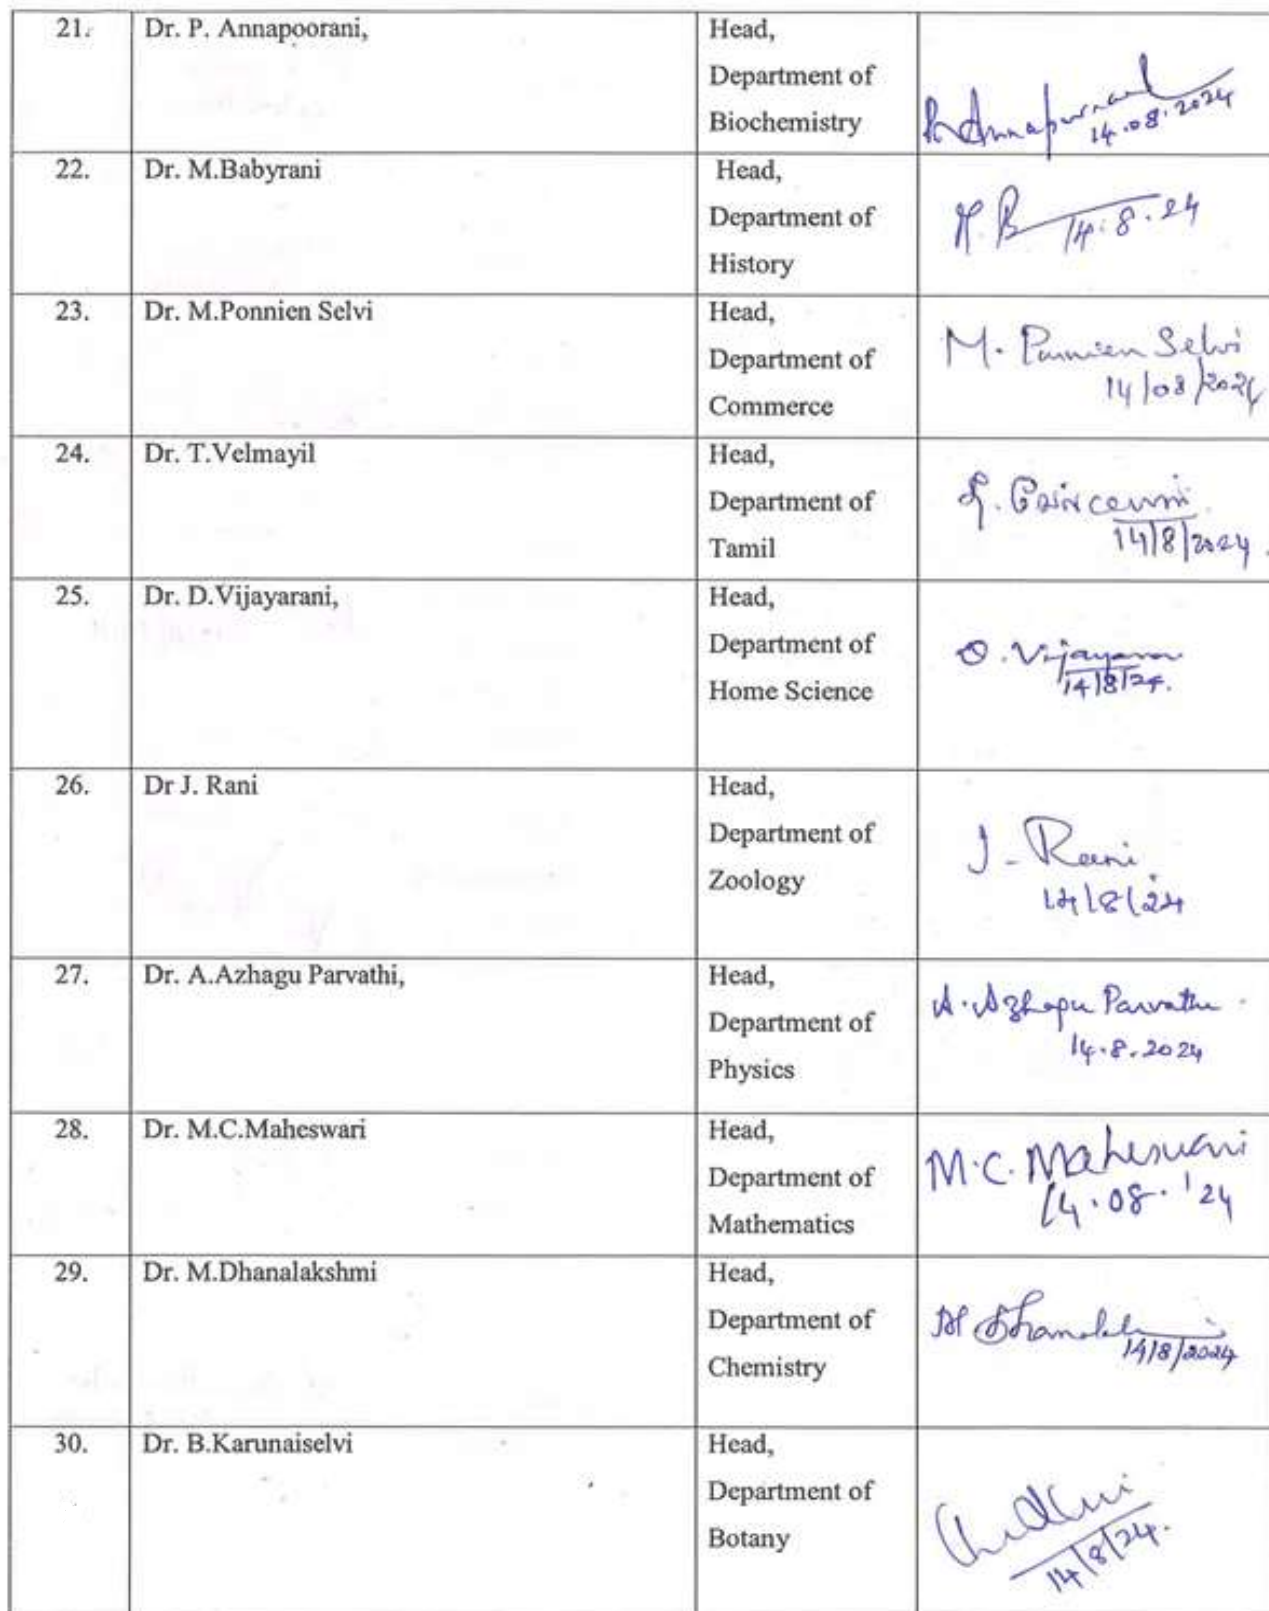 21. Dr. P. Annapoorani, Head,
Department of
Biochemistry
14.08.2024
22. Dr. M.Babyrani Head,
Department of
History
M. B 14.8.24
23. Dr. M.Ponnien Selvi Head,
Department of
Commerce
M. Ponnien Selvi
14/08/2024
24. Dr. T.Velmayil Head,
Department of
Tamil
14/8/2024.
25. Dr. D.Vijayarani, Head,
Department of
Home Science
D. Vijayarani
14/8/24.
26. Dr J. Rani Head,
Department of
Zoology
J. Rani
14/8/24
27. Dr. A.Azhagu Parvathi, Head,
Department of
Physics
A. Azhagu Parvathi
14.8.2024
28. Dr. M.C.Maheswari Head,
Department of
Mathematics
M.C. Maheswari
14.08.'24
29. Dr. M.Dhanalakshmi Head,
Department of
Chemistry
14/8/2024
30. Dr. B.Karunaiselvi Head,
Department of
Botany
14/8/24.